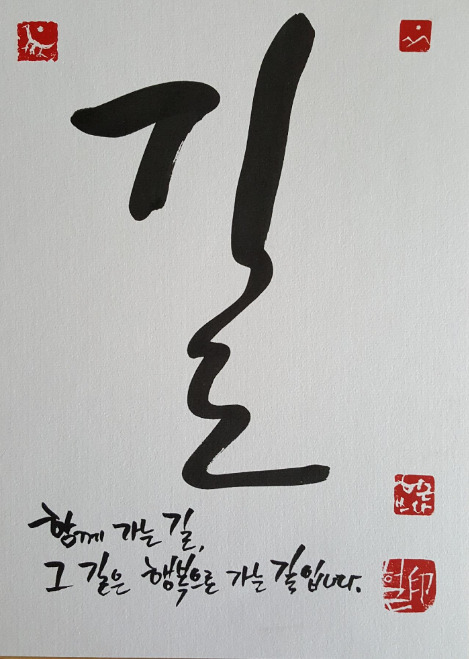 길
함께 가는 길,
그 길은 행복으로 가는 길입니다.